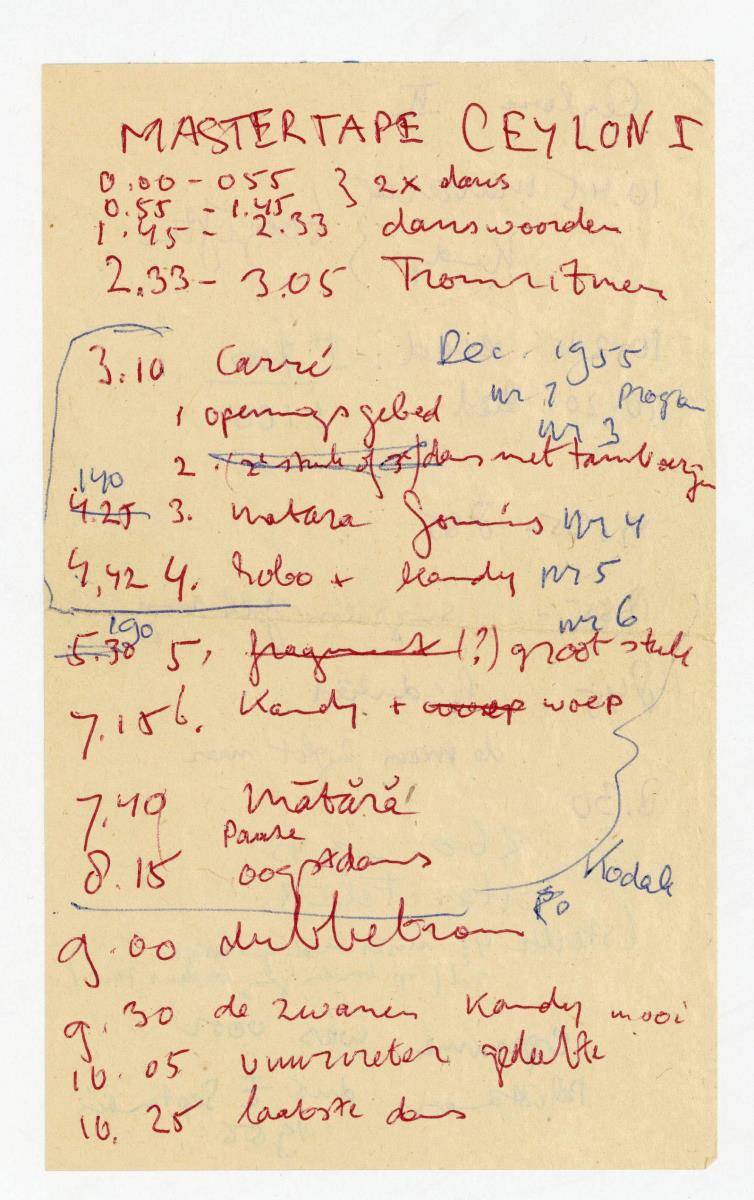 MASTERTAPE CEYLON I
0.00 - 055 } 2x dans
0.55 - 1.45
1.45 - 2.33 danswoorden
2.33 - 3.05 Tromritmen
3.10 Carré Dec. 1955
1 openingsgebed nr 1 program
nr 3
2. (2e stuk of 3e) dans met tambourijn
140
4.25 3. Matara nr 4
4,42 4. Kandy nr 5
190 nr 6
5.30 5, fragment (?) groot stuk
7.15 6. Kandy + woep woep
7.40 Mătără
Pauze
8.15 oogstdans
Kodak
9.00 dubbeltrom
9.30 de zwanen Kandy mooi
10.05 vuurvreter gedeelte
10.25 laatste dans